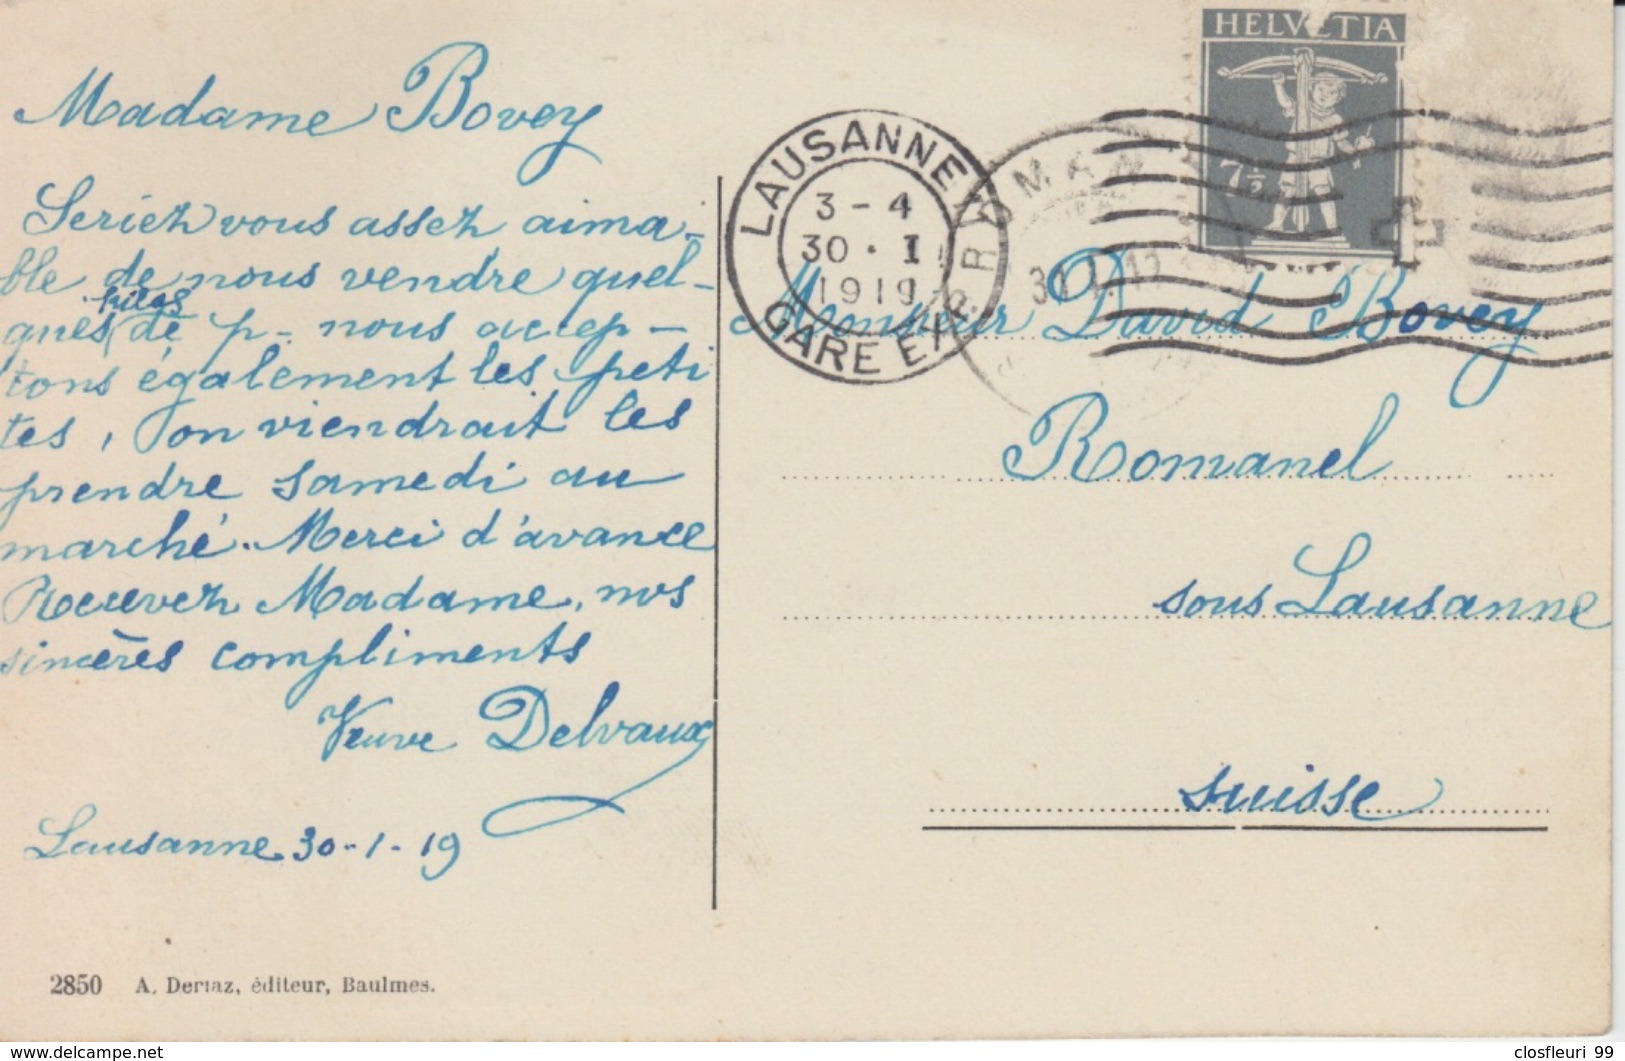 Madame Bovey
Seriez vous assez aima-
ble de nous vendre quel-
kilos
ques de p- nous accep-
tons également les peti
tes, on viendrait les
prendre samedi au
marché. Merci d'avance
Recevez Madame, nos
sincères compliments
Veuve Delvaux
Lausanne 30-1-19
2850 A. Deriaz, éditeur, Baulmes.
HELVETIA
7½
LAUSANNE
3-4
30·I
1919
GARE
Monsieur David Bovey
Romanel
sous Lausanne
suisse
closfleuri 99
www.delcampe.net